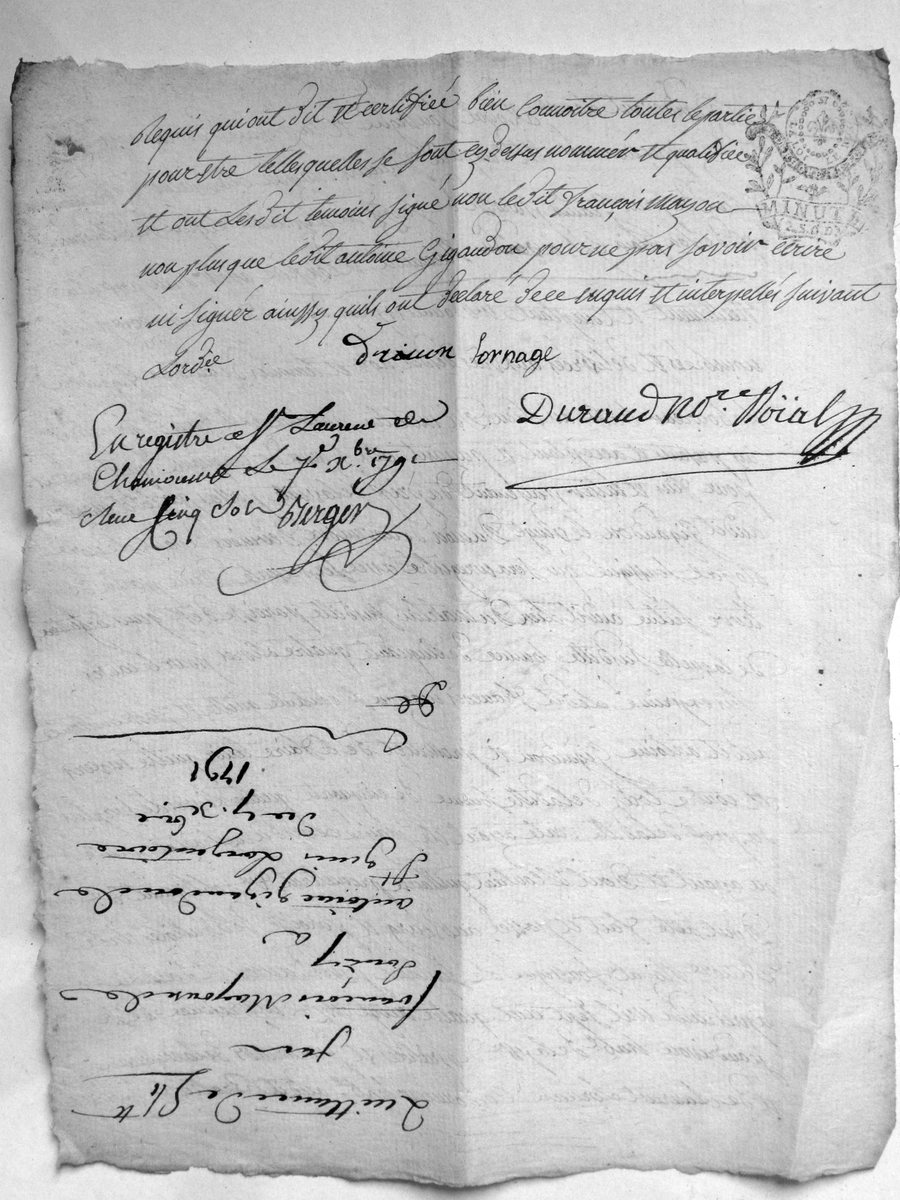 Requis qui ont dit et certifiée bien Connoitre toutes lepartie
pour etre telles quelles se sont cy dessus nommée et qualifiee
et ont Lesdit temoins signé non ledit françois mayson
non plus que ledit antoine Gigandon pour ne pas savoir écrire
ni signér ainssy quils ont déclaré de ce enquis et interpellés suivant
Lordce
Drivon Tornage
Durand Nore Roïal
MINUTE
5.S.6D
Enregistre a St Laurent de
Chamousset Le 7e Xbre 1791
Reçu Cinq Sols Berger
Quittance de
par
françois Mayson de
Souzy a
antoine gigandon de
St genis Largentiere
Du 7. Xbre
1791